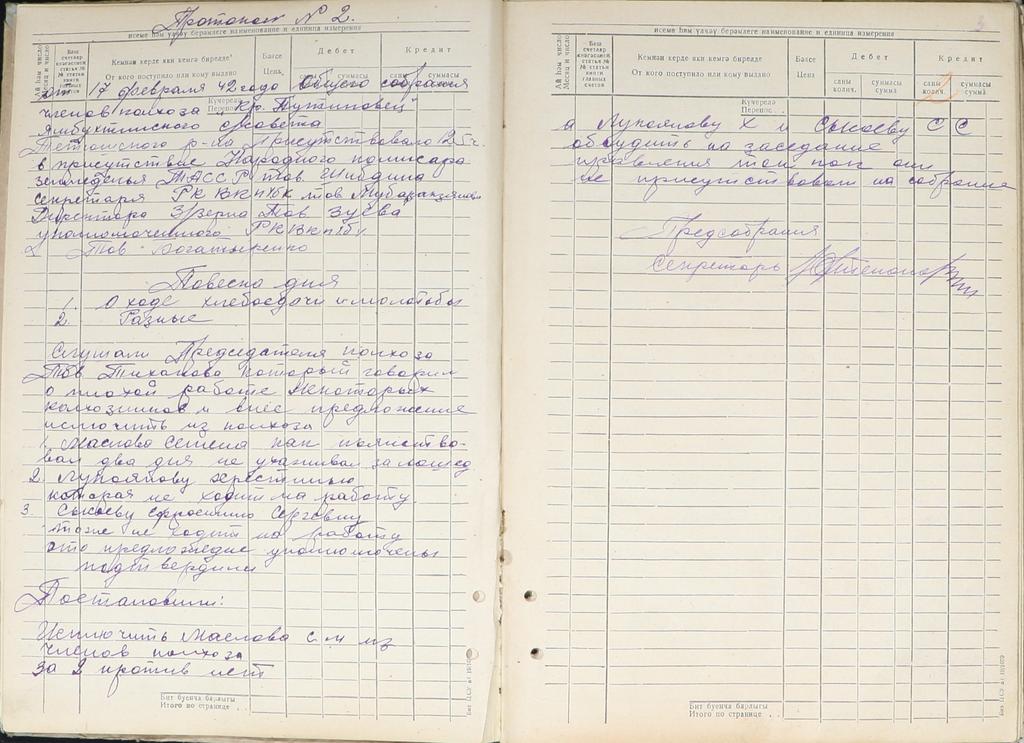 Протокол № 2.
исеме һәм үлчәү берәмлеге наименование и единица измерения
Ай һәм число
Месяц и число
Баш счетлар книгасының статья №
№ статьи книги главных счетов
Кемнән керде яки кемгә бирелде
От кого поступило или кому выдано
Бәясе
Цена,
Дебет
саны
суммасы
Кредит
саны
суммасы
от 17 февраля 42 года общего собрания
Күчерелә
Перенос
членов колхоза "Кр. Путиловец"
Ямбухтинского с/совета
Тетюшского р-на Присутствовало 125 ч.
в присутствие Народного комисара
земледенья ТАССР тов. Шибдина
секретаря РК ВКПбк тов Мубаракзянов
Директора З/Зерна Тов Зуева
уполномоченного РКВКПбк
Тов Богатыренко
Повеска дня
1. О ходе хлебосдачи и молотьбы
2. Разные
Слушали Председателя колхоза
Тов Тиханова который говорил
о плохой работе некоторых
колхозников и внес предложение
исключить из колхоза
1. Маслова Семена как пьянство-
вал два дня не ухаживал за лошед
2. Лукоянову Хрестинью
которая не ходит на работу
3. Сыкаеву Ефросинию Сергевну
тоже не ходит на работу
это предложедие уполномочены
подтвердили
Постановили:
Исключить Маслова С. М из
членов колхоза
за 2 против нет
Бит буенча барлыгы
Итого по странице
исеме һәм үлчәү берәмлеге наименование и единица измерения
Ай һәм число
Месяц и число
Баш счетлар книгасының статья №
№ статьи книги главных счетов
Кемнән керде яки кемгә бирелде
От кого поступило или кому выдано
Бәясе
Цена
Дебет
саны
колич.
суммасы
сумма
Кредит
саны
колич.
суммасы
сумма
2
Күчерелә
Перенос
а Лукоянову Х и Сыкаеву Е С
обсудить на заседание
правления так как они
не присутствовали на собрание
Предсобрания
Секретарь
Бит буенча барлыгы
Итого по странице